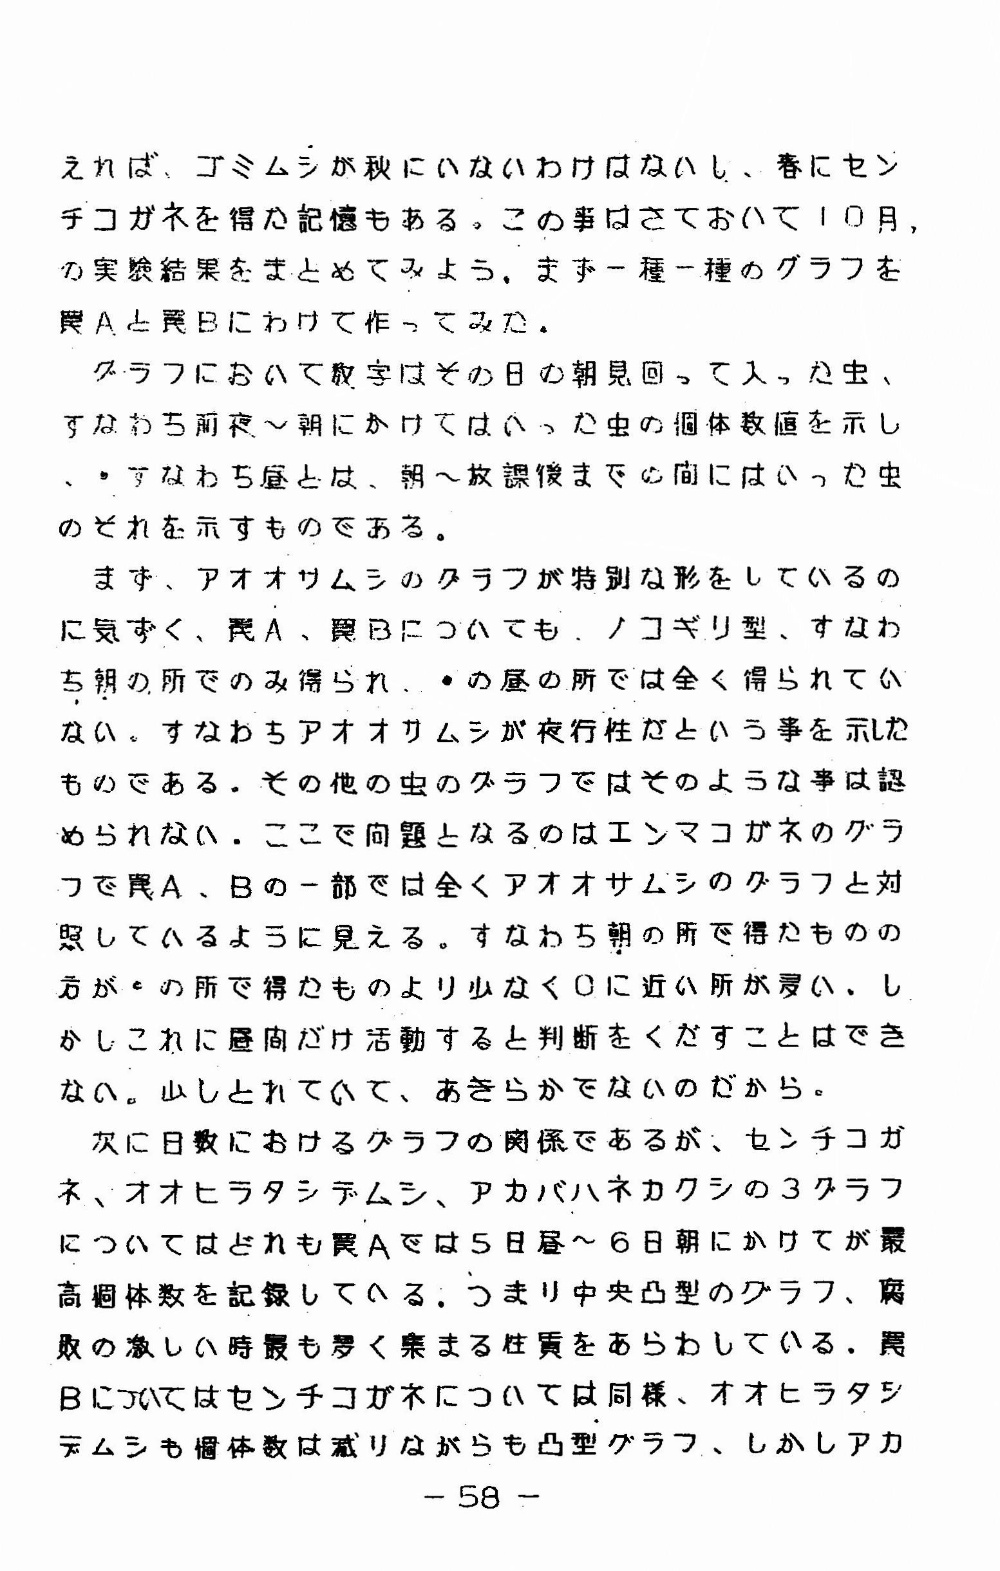 えれば、ゴミムシが秋にいないわけはないし、春にセン
チコガネを得た記憶もある。この事はさておいて10月,
の実験結果をまとめてみよう．まず一種一種のグラフを
罠Aと罠Bにわけて作ってみた．
グラフにおいて数字はその日の朝見回って入った虫、
すなわち前夜〜朝にかけてはいった虫の個体数値を示し
、・すなわち昼とは、朝〜放課後までの間にはいった虫
のそれを示すものである。
まず、アオオサムシのグラフが特別な形をしているの
に気ずく、罠A、罠Bについても．ノコギリ型、すなわ
ち朝の所でのみ得られ、・の昼の所では全く得られてい
ない。すなわちアオオサムシが夜行性だという事を示した
ものである．その他の虫のグラフではそのような事は認
められない．ここで問題となるのはエンマコガネのグラ
フで罠A、Bの一部では全くアオオサムシのグラフと対
照しているように見える。すなわち朝の所で得たものの
方が・の所で得たものより少なく0に近い所が多い．し
かしこれに昼間だけ活動すると判断をくだすことはでき
ない。少しとれていて、あきらかでないのだから。
次に日数におけるグラフの関係であるが、センチコガ
ネ、オオヒラタシデムシ、アカバハネカクシの3グラフ
についてはどれも罠Aでは5日昼〜6日朝にかけてが最
高個体数を記録している．つまり中央凸型のグラフ、腐
敗の激しい時最も多く集まる性質をあらわしている．罠
Bについてはセンチコガネについては同様、オオヒラタシ
デムシも個体数は減りながらも凸型グラフ、しかしアカ
－58－